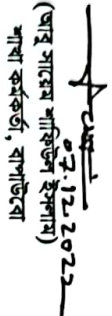 ০৭.১২.২০২২
(আবু সায়েম শাকিউল ইসলাম)
শাখা কর্মকর্তা, বাপাউবো